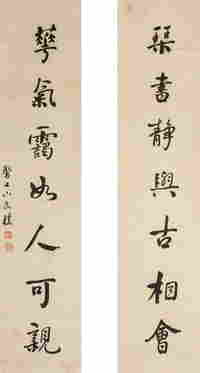 琹書静與古相會
華氣靄如人可親